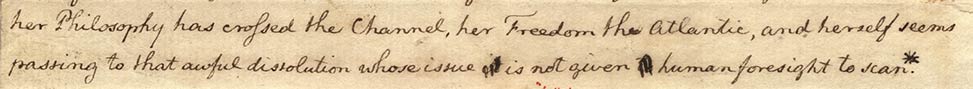 her Philosophy has crossed the Channel, her Freedom the Atlantic, and herself seems
passing to that awful dissolution whose issue is not given human foresight to scan.*